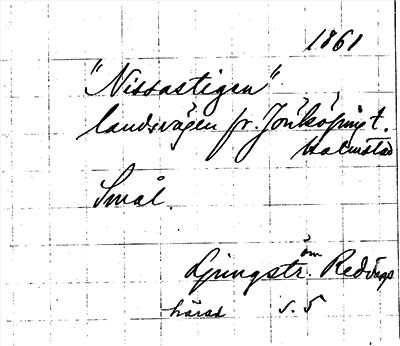 1861
"Nissastigen"
landsvägen fr. Jönköping t.
Halmstad
Smål.
Ljungstr. om Redvägs
härad s. 5